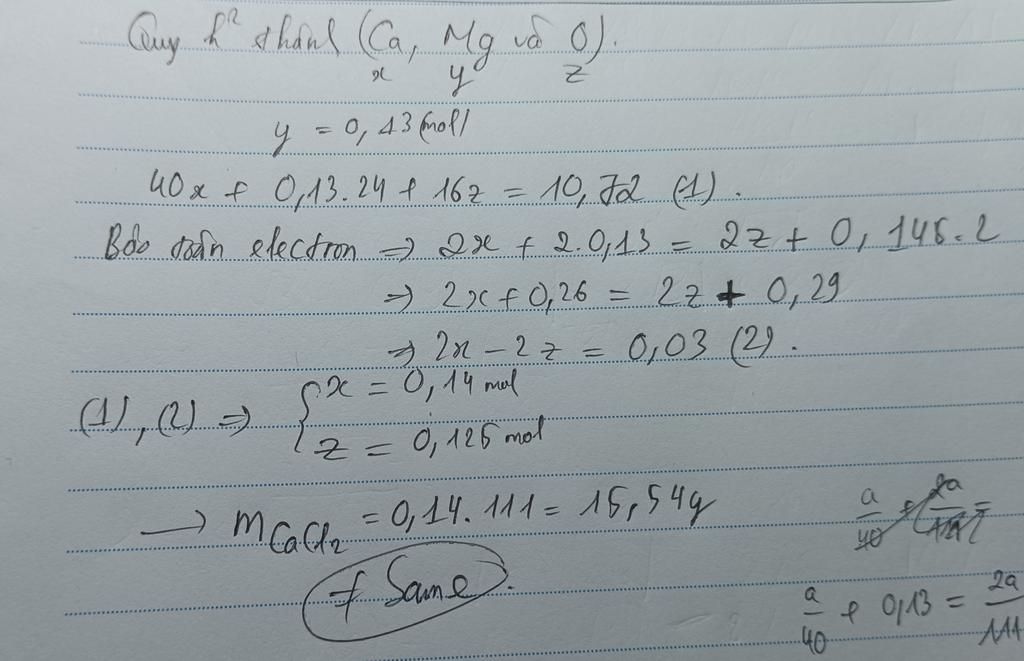 Quy h² thành (Ca, Mg và O).
x y z
y = 0,13 (mol)
40x + 0,13.24 + 16z = 10,72 (1).
Bảo toàn electron => 2x + 2.0,13 = 2z + 0,145.2
=> 2x + 0,26 = 2z + 0,29
=> 2x - 2z = 0,03 (2).
(1), (2) => { x = 0,14 mol
z = 0,125 mol
→ mCaCl2 = 0,14.111 = 15,54g
+ Same.
a/40 + 2a/111 =
a/40 + 0,13 = 2a/111